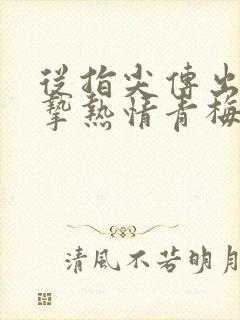 從指尖傳出
摯熱情青梅
清風不若明月